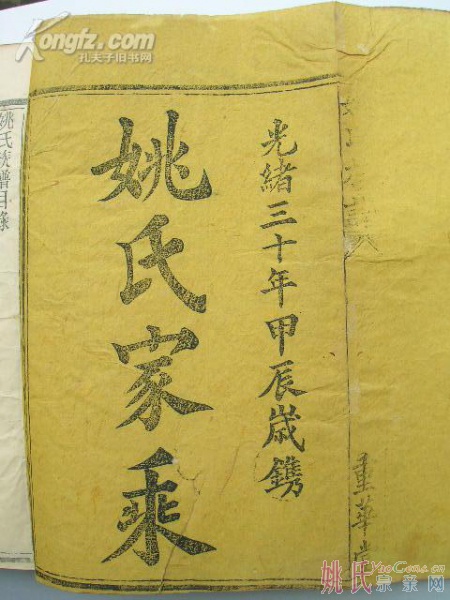 Kongfz.com
孔夫子旧书网
光緒三十年甲辰歲鐫
姚氏家乘
重華堂
姚氏族譜目錄
姚氏宗亲网
YaoCens.com